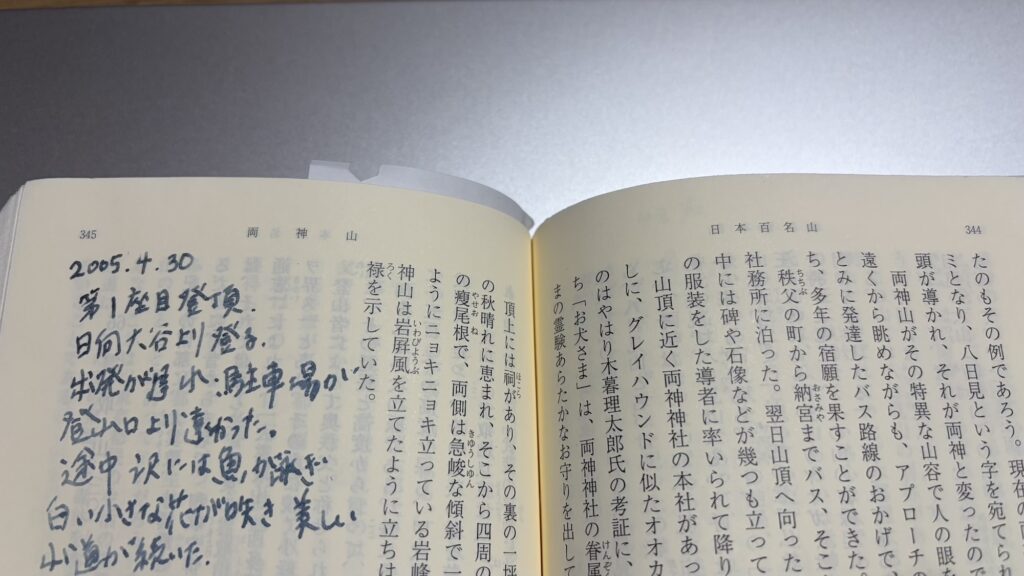 日本百名山
344
たのもその例であろう。現在の
ミとなり、八日見という字を宛てられ
頭が導かれ、それが両神と変ったので
両神山がその特異な山容で人の眼を
遠くから眺めながらも、アプローチの
とみに発達したバス路線のおかげで、
ち、多年の宿願を果すことができた。
ちちぶ おさみや
秩父の町から納宮までバス、そこ
社務所に泊った。翌日山頂へ向った
中には碑や石像などが幾つも立って
の服装をした導者に率いられて降り
山頂に近く両神神社の本社があっ
しに、グレイハウンドに似たオオカ
のはやり木暮理太郎氏の考証に、
けんぞく
ち「お犬さま」は、両神神社の眷属
まの霊験あらたかなお守りを出して
345
両神山
ほこら
頂上には祠があり、その裏の一坪
の秋晴れに恵まれ、そこから四周の
やせおね きゅうしゅん
の瘦尾根で、両側は急峻な傾斜で一
ようにニョキニョキ立っている岩峰
いわびょうぶ
神山は岩屏風を立てたように立ちは
ろく
禄を示していた。
2005.4.30
第1座目登頂.
日向大谷より登る.
出発が遅れ、駐車場が
登山口より遠かった。
途中 沢には魚が泳ぎ
白い小さな花が咲き 美しい
山道が続いた.